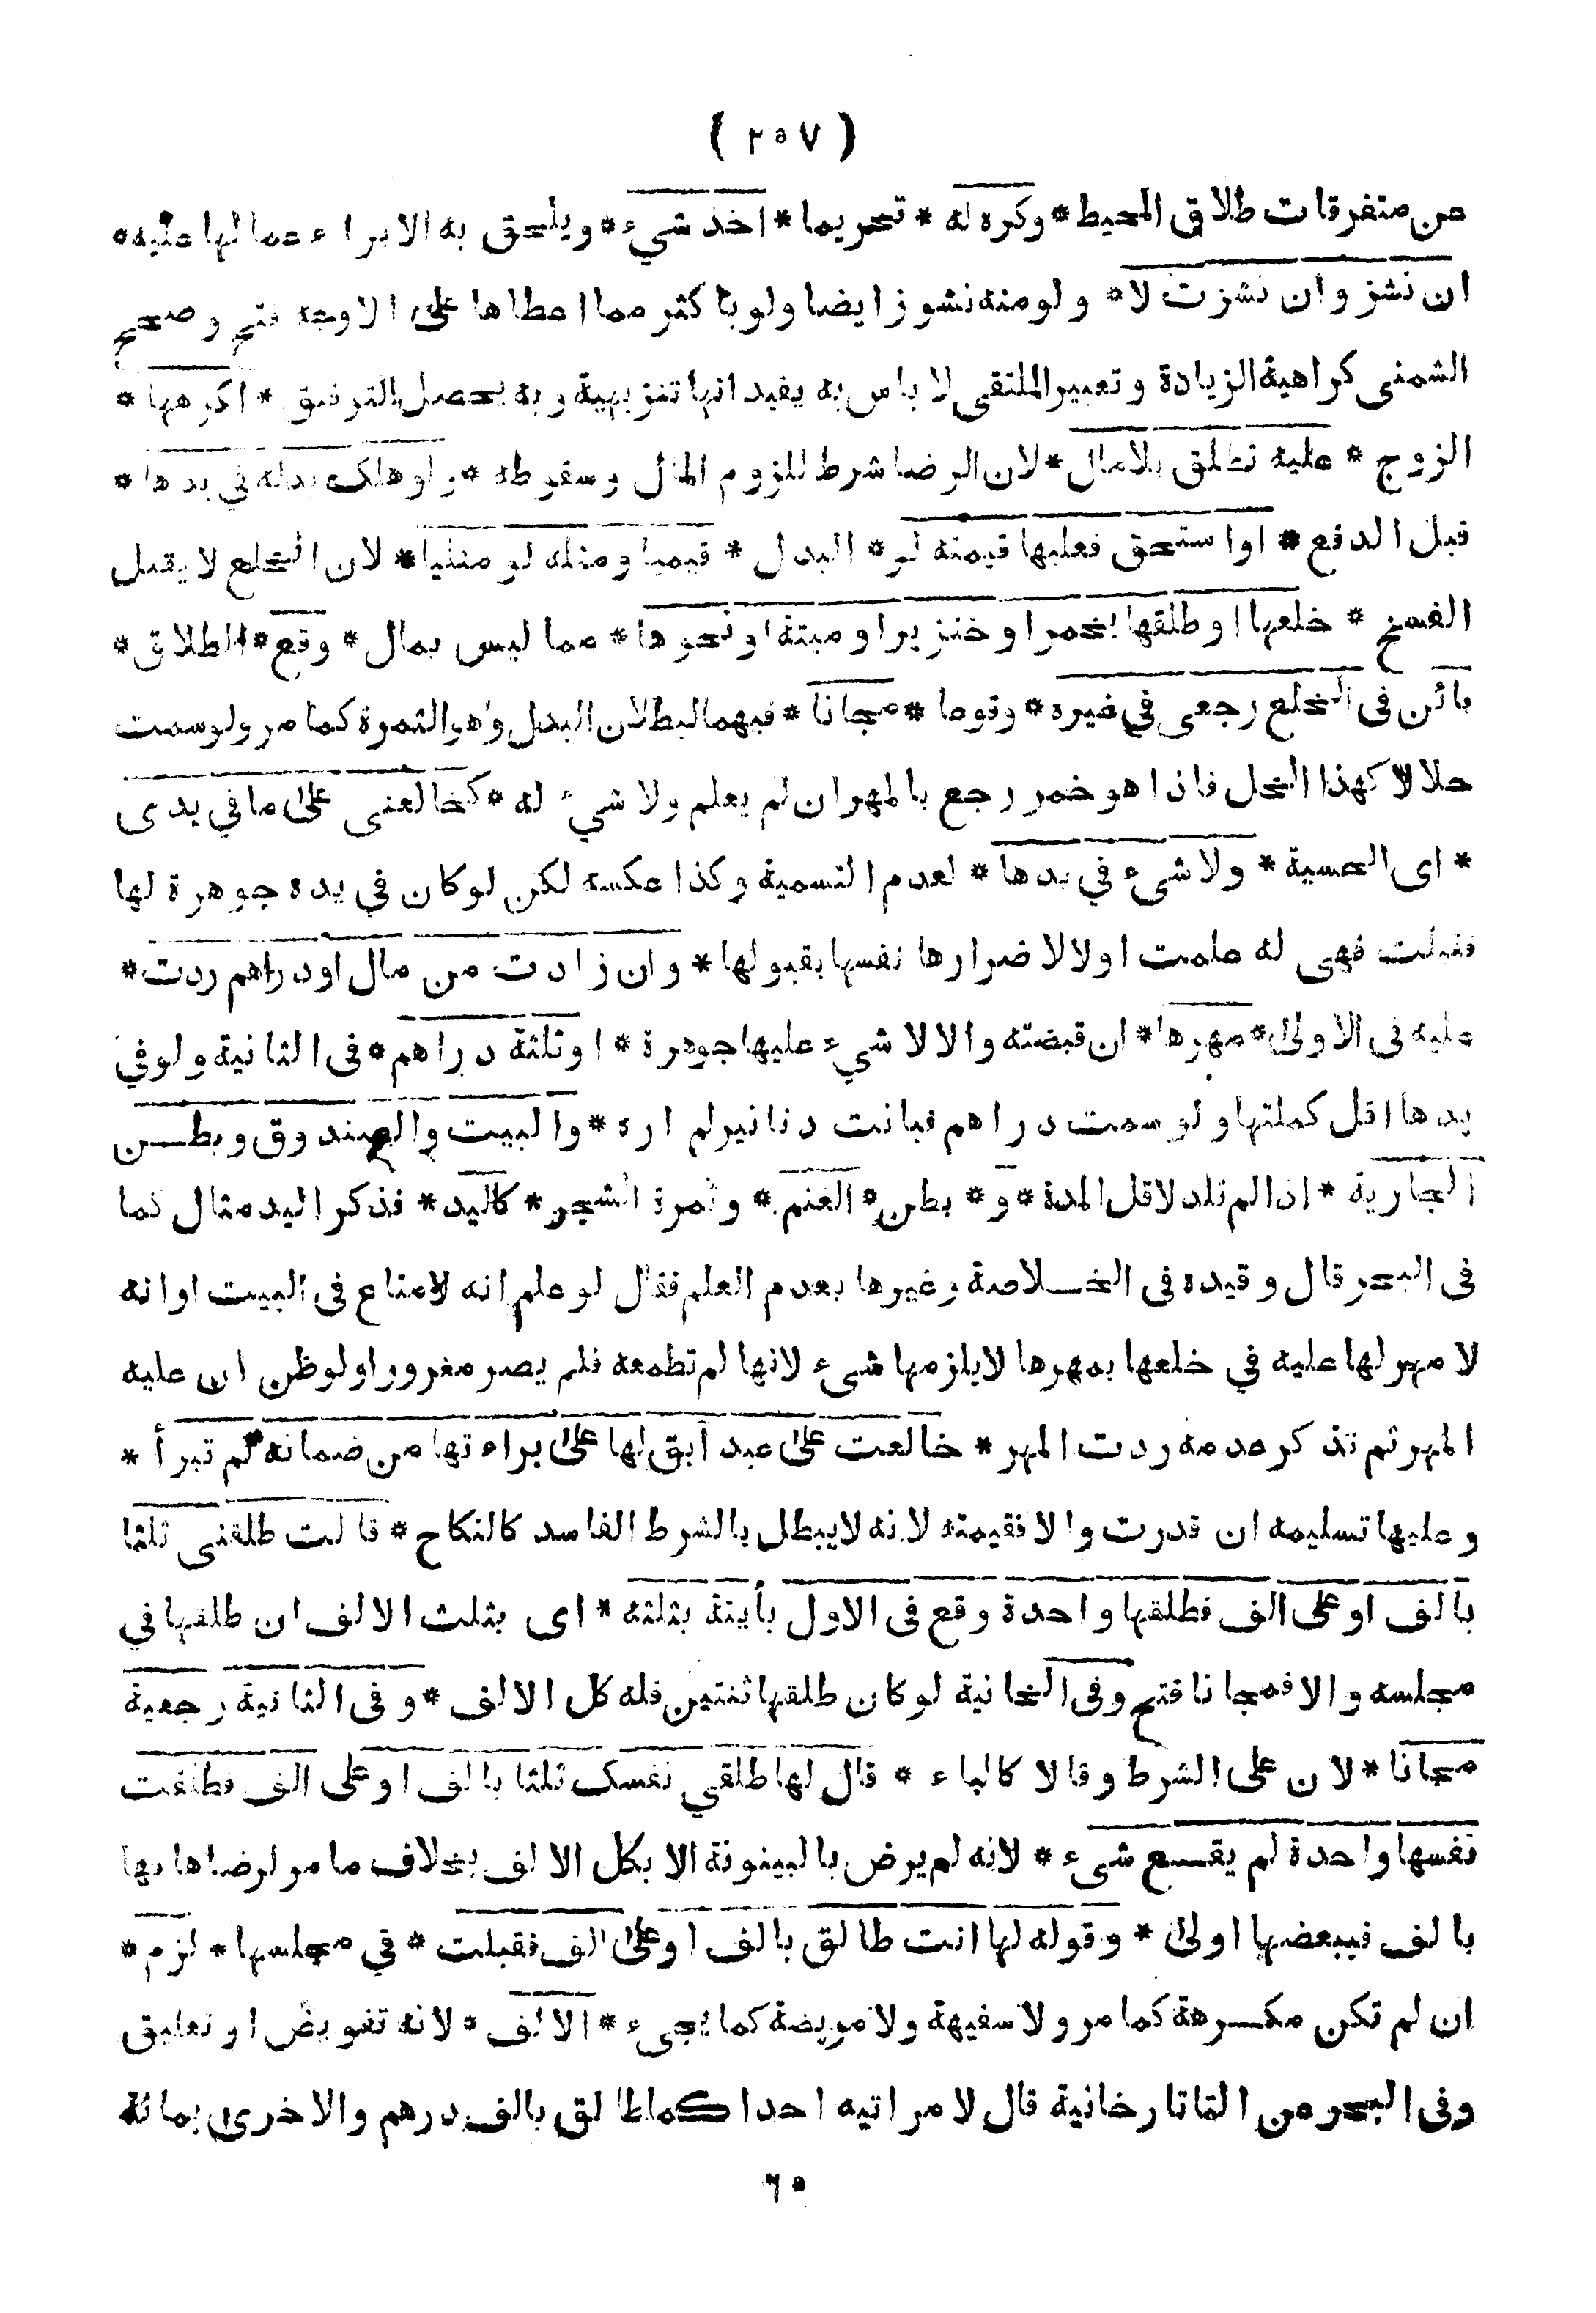 ( ٢٥٧ )
عن متفرقات طلاق المحيط * وكره له * تحريما * اخذ شيء * ويلحق به الابراء عما لها عليه *
ان نشز وان نشزت لا * ولو منه نشوز ايضا ولو باكثر مما اعطاها على الاوجه فتح وصحح
الشمنى كراهية الزيادة وتعبير الملتقى لا باس به يفيد انها تنزيهية وبه يحصل التوفيق * اكرهها *
الزوج * عليه تطلق بلا مال * لان الرضا شرط للزوم المال وسقوطه * ولو هلك بدله في يدها *
قبل الدفع * او استحق فعليها قيمته لو * البدل * قيميا ومثله لو مثليا * لان الخلع لا يقبل
الفسخ * خلعها او طلقها بخمر او خنزير او ميتة او نحوها * مما ليس بمال * وقع * الطلاق *
بائن فى الخلع رجعى في غيره * وقوعا * مجانا * فيهما لبطلان البدل وهو الثمرة كما مر ولو سمت
حلالا كهذا الخل فاذا هو خمر رجع بالمهر ان لم يعلم ولا شيء له * كخالعنى على ما في يدى
* اى الحسية * ولا شىء في يدها * لعدم التسمية وكذا عكسه لكن لو كان في يده جوهرة لها
فقبلت فهى له علمت اولا لاضرارها نفسها بقبولها * وان زادت من مال او دراهم ردت *
عليه فى الاولى * مهرها * ان قبضته والا لا شيء عليها جوهرة * او ثلثة دراهم * فى الثانية ولو في
يدها اقل كملتها ولو سمت دراهم فبانت دنانير لم اره * والبيت والصندوق وبطن
الجارية * اذا لم تلد لاقل المدة * و * بطن * الغنم * وثمرة الشجر * كاليد * فذكر اليد مثال كما
فى البحر قال وقيده فى الخلاصة وغيرها بعدم العلم فقال لو علم انه لا متاع فى البيت او انه
لا مهر لها عليه في خلعها بمهرها لا يلزمها شىء لانها لم تطمعه فلم يصر مغرورا ولو ظن ان عليه
المهر ثم تذكر عدمه ردت المهر * خالعت على عبد آبق لها على براءتها من ضمانه لم تبرأ *
وعليها تسليمه ان قدرت والا فقيمته لانه لا يبطل بالشرط الفاسد كالنكاح * قالت طلقنى ثلثا
بالف او على الف فطلقها واحدة وقع فى الاول بأينة بثلثه * اى بثلث الالف ان طلقها في
مجلسه والا فمجانا فتح وفى الخانية لو كان طلقها ثنتين فله كل الالف * وفى الثانية رجعية
مجانا * لان على الشرط وقالا كالباء * قال لها طلقي نفسك ثلثا بالف او على الف فطلقت
نفسها واحدة لم يقع شىء * لانه لم يرض بالبينونة الا بكل الالف بخلاف ما مر لرضاها بها
بالف فببعضها اولى * وقوله لها انت طالق بالف او على الف فقبلت * في مجلسها * لزم *
ان لم تكن مكرهة كما مر ولا سفيهة ولا مريضة كما يجىء * الالف * لانه تفويض او تعليق
وفى البحر من التاتارخانية قال لامراتيه احداكما طالق بالف درهم والاخرى بمائة
٦٥